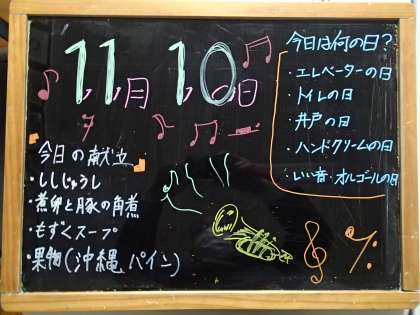 11月10日
今日は何の日？
・エレベーターの日
・トイレの日
・井戸の日
・ハンドクリームの日
・いい音・オルゴールの日
今日の献立
・ししじゅうし
・煮卵と豚の角煮
・もずくスープ
・果物(沖縄パイン)